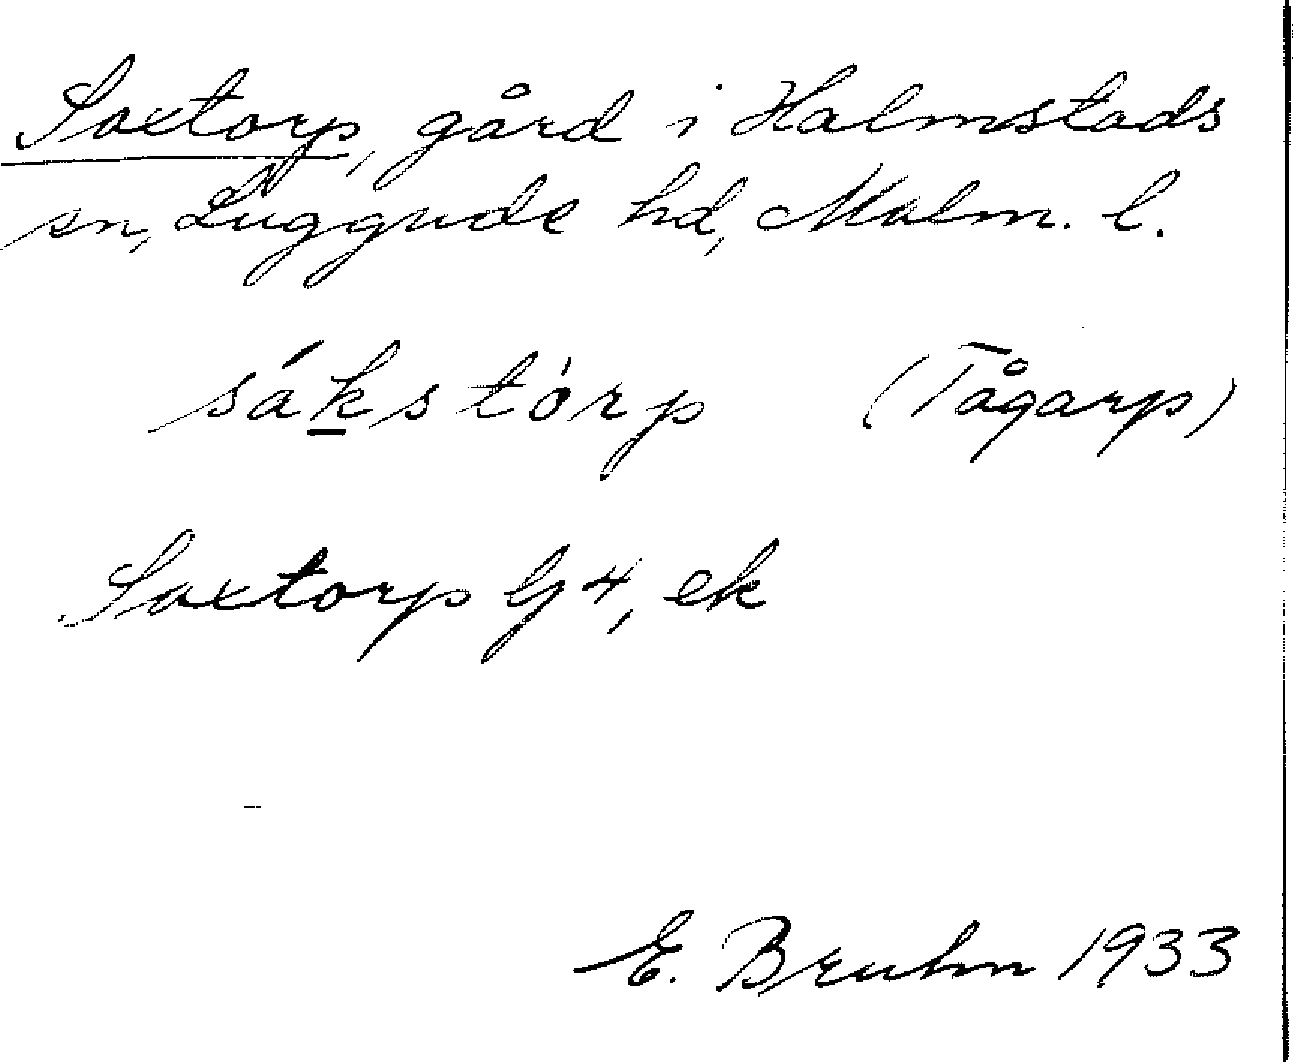 Saxtorp, gård i Halmstads
sn, Luggude hd, Malm. l.
sákstòrp (Tågarp)
Saxtorp G4, ek
E. Bruhn 1933